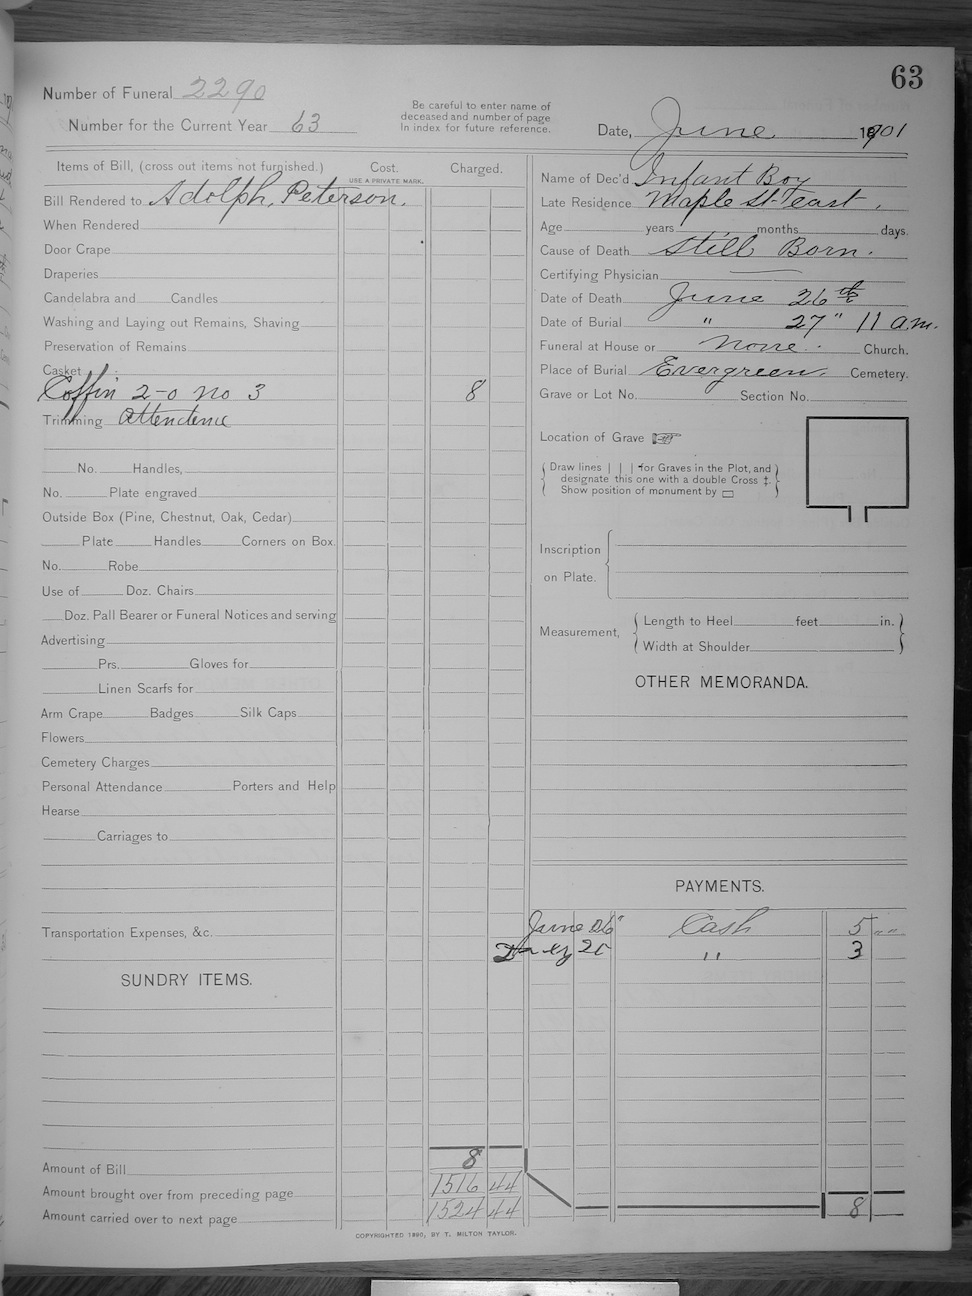 63
Number of Funeral 2290
Number for the Current Year 63
Be careful to enter name of
deceased and number of page
In index for future reference.
Date, June 1901
Items of Bill, (cross out items not furnished.) Cost. Charged.
USE A PRIVATE MARK.
Bill Rendered to Adolph. Peterson.
When Rendered
Door Crape
Draperies
Candelabra and Candles
Washing and Laying out Remains, Shaving
Preservation of Remains
Casket
Coffin 2-0 no 3 8
Trimming Attendence
No. Handles,
No. Plate engraved
Outside Box (Pine, Chestnut, Oak, Cedar)
Plate Handles Corners on Box.
No. Robe
Use of Doz. Chairs
Doz. Pall Bearer or Funeral Notices and serving
Advertising
Prs. Gloves for
Linen Scarfs for
Arm Crape Badges Silk Caps
Flowers
Cemetery Charges
Personal Attendance Porters and Help
Hearse
Carriages to
Transportation Expenses, &c.
SUNDRY ITEMS.
Amount of Bill 8
Amount brought over from preceding page 1516 44
Amount carried over to next page 1524 44
Name of Dec'd Infant Boy
Late Residence Maple St. east.
Age years months days.
Cause of Death Still Born.
Certifying Physician
Date of Death June 26th
Date of Burial " 27" 11 a.m.
Funeral at House or None. Church.
Place of Burial Evergreen. Cemetery.
Grave or Lot No. Section No.
Location of Grave
Draw lines | | | for Graves in the Plot, and
designate this one with a double Cross ‡.
Show position of monument by
Inscription
on Plate.
Measurement,
Length to Heel feet in.
Width at Shoulder
OTHER MEMORANDA.
PAYMENTS.
June 26" Cash 5 " "
25 " 3
8
COPYRIGHTED 1890, BY T. MILTON TAYLOR.